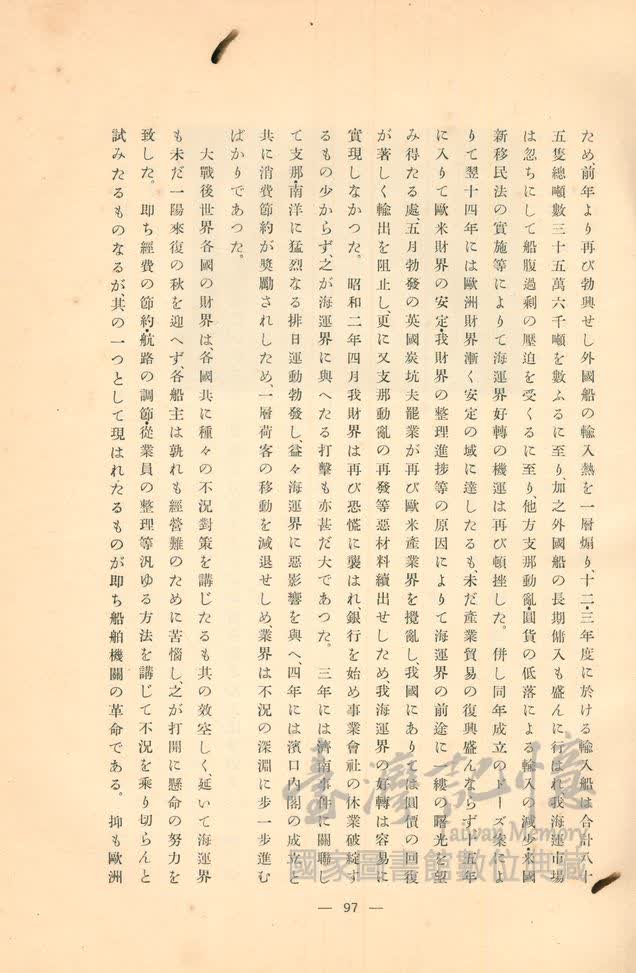 ため、前年より再び勃興せし外國船の輸入熱を一層煽り、十二・三年度に於ける輸入船は合計八十
五隻總噸數三十五萬六千噸を數ふるに至り、加之外國船の長期傭入も盛んに行はれ、我海運市場
は忽ちにして船腹過剩の壓迫を受くるに至り、他方支那動亂・圓貨の低落による輸入の減少・米國
新移民法の實施等によりて海運界好轉の機運は再び頓挫した。 併し同年成立のドーズ案によ
りて翌十四年には歐洲財界漸く安定の域に達したるも、未だ産業貿易の復興盛んならず十五年
に入りて歐米財界の安定・我財界の整理進捗等の原因によりて海運界の前途に一縷の曙光を望
み得たる處、五月勃發の英國炭坑夫罷業が再び歐米産業界を攪亂し、我國にありては圓價の回復
が著しく輸出を阻止し、更に又支那動亂の再發等惡材料續出せしため、我海運界の好轉は容易に
實現しなかつた。 昭和二年四月我財界は再び恐慌に襲はれ、銀行を始め事業會社の休業破綻す
るもの少からず、之が海運界に與へたる打擊も亦甚だ大であつた。 三年には濟南事件に關聯し
て支那・南洋に猛烈なる排日運動勃發し、益々海運界に惡影響を與へ四年には濱口内閣の成立と
共に消費節約が奬勵されしため、一層荷客の移動を減退せしめ、業界は不況の深淵に步一步進む
ばかりであつた。
大戰後世界各國の財界は、各國共に種々の不況對策を講じたるも其の效空しく、延いて海運界
も未だ一陽來復の秋を迎へず、各船主は孰れも經營難のために苦惱し、之が打開に懸命の努力を
致した。 即ち經費の節約・航路の調節・從業員の整理等汎ゆる方法を講じて不況を乘り切らんと
試みたるものなるが其の一つとして現はれたるものが即ち船舶機關の革命である。 抑も歐洲
— 97 —
臺灣記憶
Taiwan Memory
國家圖書館數位典藏